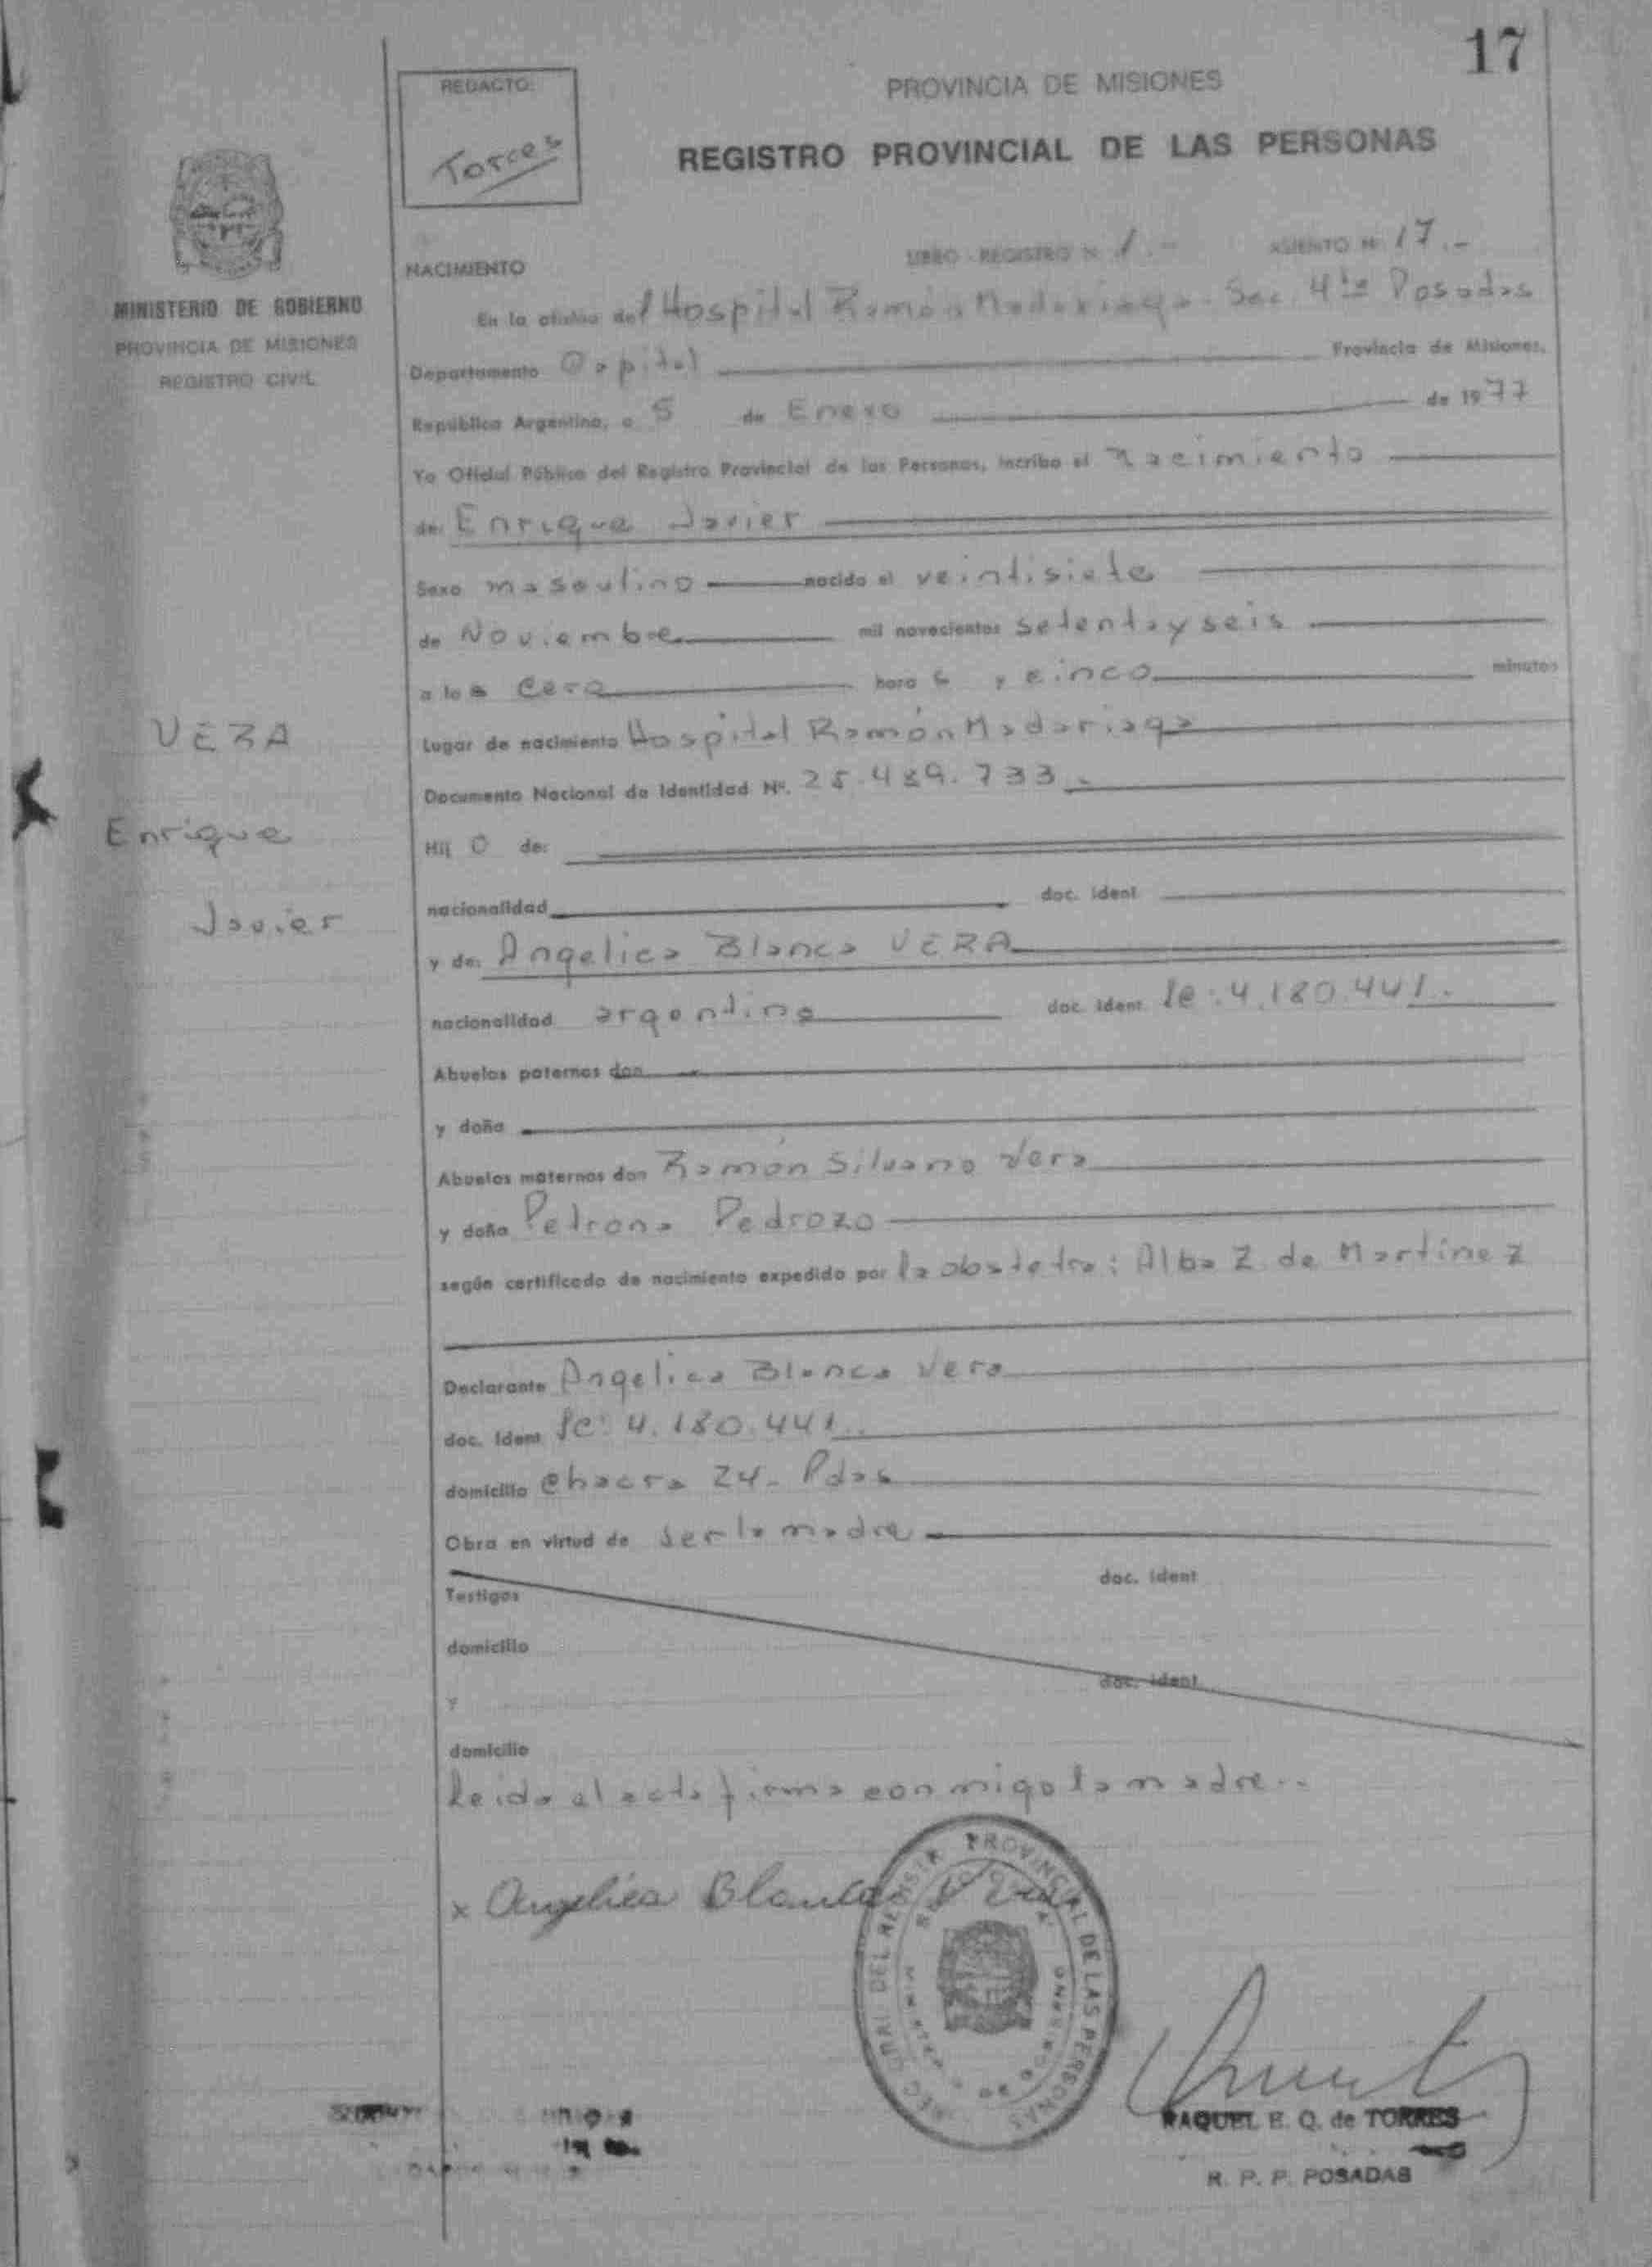 17
REDACTO:
Torres
PROVINCIA DE MISIONES
REGISTRO PROVINCIAL DE LAS PERSONAS
MINISTERIO DE GOBIERNO
PROVINCIA DE MISIONES
REGISTRO CIVIL
NACIMIENTO LIBRO REGISTRO Nº 1.- ASIENTO Nº 17.-
En la oficina del Hospital Ramón Madariaga - Sec. 4ta Posadas
Departamento Capital Provincia de Misiones,
República Argentina, a 5 de Enero de 1977
Yo Oficial Público del Registro Provincial de las Personas, incribo el nacimiento
de: Enrique Javier
Sexo masculino nacido el veintisiete
de Noviembre mil novecientos setenta y seis
a las cero horas y cinco minutos
Lugar de nacimiento Hospital Ramón Madariaga
Documento Nacional de Identidad Nº. 25.489.733.-
VERA
Enrique
Javier
Hij o de:
nacionalidad doc. ident
y de: Angelica Blanca VERA
nacionalidad argentina doc. ident lc: 4.180.441.-
Abuelos paternos don
y doña
Abuelos maternos don Ramón Silvano Vera
y doña Petrona Pedrozo
según certificado de nacimiento expedido por la obstetra: Alba Z de Martinez
Declarante Angelica Blanca Vera
doc. ident lc: 4.180.441..
domicilio Chacra 24- Pdas
Obra en virtud de ser la madre
doc. ident
Testigos
domicilio
doc. ident
y
domicilio
Leida el acta firma conmigo la madre..
x Angelica Blanca Vera
PROVINCIAL DE LAS PERSONAS
RAQUEL E. Q. de TORRES
R. P. P. POSADAS